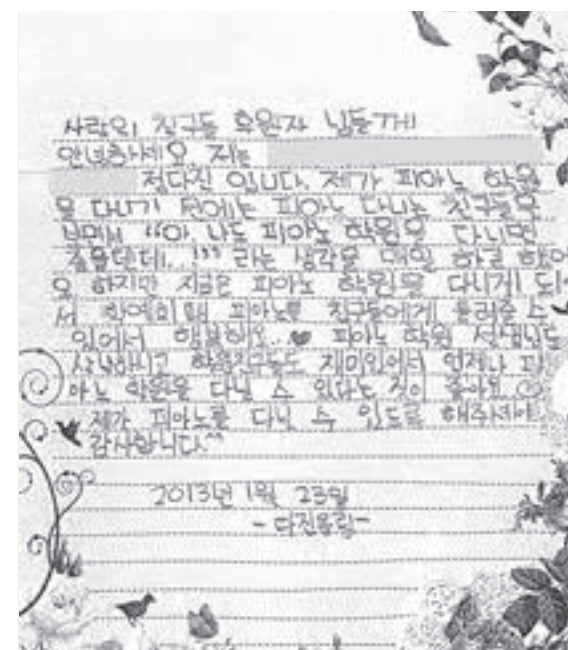 사랑의 친구들 후원자 님들께
안녕하세요. 저는
정다진 입니다. 제가 피아노 학원
을 다니기 전에는 피아노 다니는 친구들을
보면서 "아 나도 피아노 학원을 다니면
좋을텐데..." 라는 생각을 매일 하곤 했어
요 하지만 지금은 피아노 학원을 다니게 되어
서 학예회때 피아노를 친구들에게 들려줄 수
있어서 행복해요..♥ 피아노 학원 선생님도
상냥하시고 학원친구들도 재미있어서 언제나 피
아노 학원을 다닐 수 있다는 것이 좋아요
제가 피아노를 다닐 수 있도록 해주셔서
감사합니다^^
2013년 1월 23일
-다진올림-